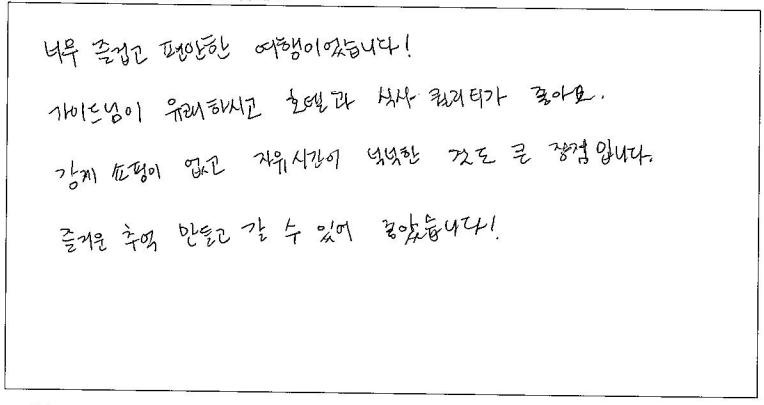 너무 즐겁고 편안한 여행이었습니다!
가이드님이 유쾌하시고 호텔과 식사 퀄리티가 좋아요.
강제 쇼핑이 없고 자유시간이 넉넉한 것도 큰 장점입니다.
즐거운 추억 만들고 갈 수 있어 좋았습니다!